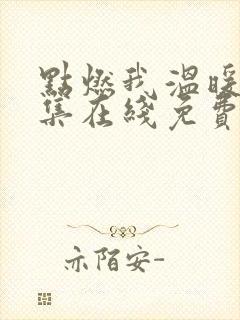 點燃我 溫暖
集在綫免費
亦陌安-